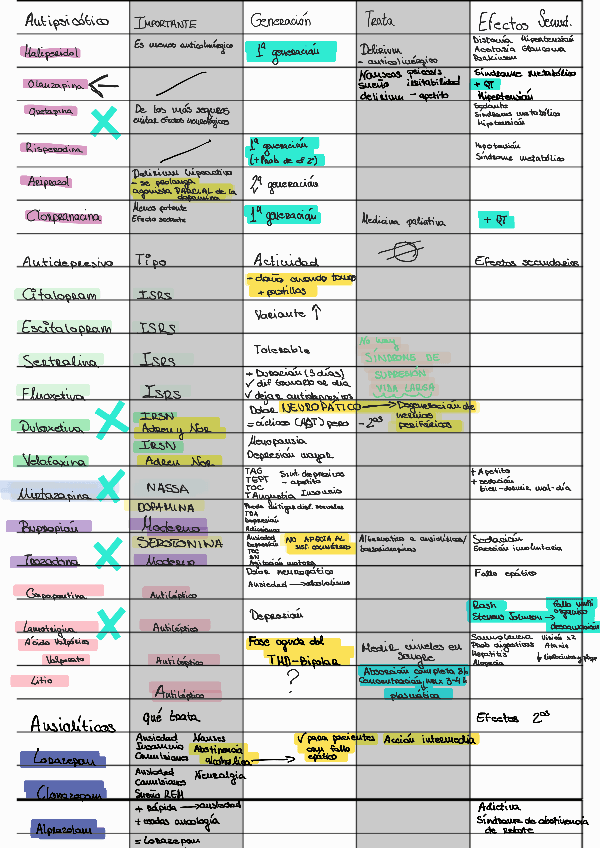 Antipsicótico IMPORTANTE Generación Trata Efectos Secund.
Haliperidol Es menos anticolinérgico 1ª generación Delirium
- anticolinérgico
Distonía Hipertensión
Acatasia Glaucoma
Parkinson
Olanzapina
Nauseas psicosis
sueño irritabilidad
delirium - apetito
Síndrome metabólico
+ QT
Hipertensión
Quetapina De los más seguros
evitar efectos neurológicos
Sedante
Síndrome metabólico
Hipotensión
Risperadina 1ª generación
(+ Prob de ef 2º)
Hipotensión
Síndrome metabólico
Aripizol Delirium hipoactivo
- se prolonga
agonista PARCIAL de la
dopamina
2ª generación
Clorpromacina Menos potente
Efecto sedante
1ª generación Medicina paliativa + QT
Antidepresivo Tipo Actividad Efectos secundarios
Citalopram ISRS - daño cuando tomas
+ pastillas
Escitalopram ISRS Variante ↑
Sertralina ISRS Tolerable
No way
SÍNDROME DE
SUPRESIÓN
VIDA LARGA
Fluoxetina ISRS + Duración (3 días)
✓ dif tomarlo al día
✓ dejar antidepresivos
Duloxetina IRSN
Adren y Nor
Dolor NEUROPÁTICO → Degeneración de
nervios
periféricos
= cíclicos (AST) pero - 2ᵒˢ
Velafaxina IRSN
Adren Nor
Menopausia
Depresión mayor
Mirtazapina NASSA
TAG Sint. depresivos
TEPT - apetito
TOC
T Angustia Insomnio
+ Apetito
+ sedación
bien-dormir mal-día
Bupropión DOPAMINA
Moderno
TDA
Depresión
Adicciones
Trazodona SEROTONINA
Moderno
Ansiedad
Depresión
TOC
BN
Agitación motora
NO AFECTA AL
Alternativa a ansiolíticos/
benzodiacepinas
Sedación
Erección involuntaria
Gapapentina Antiléptico
Dolor neuropático
Ansiedad → alcoholismo
Fallo epático
Lamotrigina Antiléptico Depresión
Rash
Stevens Johnson →
fallo multi
orgánico
descamación
Ácido Valpóico
Valproato Antiléptico
Fase aguda del
THD-Bipolar
Medir niveles en
sangre
Somnolencia Visión x2
Prob digestivos Ataxia
Hepatitis
Alopecia
Litio Antiléptico ?
Absorción completa 8h
Concentración máx 3-4 h
plasmática
Ansiolíticos Qué trata Efectos 2ᵒˢ
Lorazepam
Ansiedad Nauseas
Insomnio Abstinencia
Convulsiones alcohólica →
✓ para pacientes
con fallo
epático
Acción intermedia
Clonazepam
Ansiedad Neuralgia
Convulsiones
Sueño REM
Alprazolam
+ rápida → ansiedad
+ usadas oncología
= Lorazepam
Adictiva
Síndrome de abstinencia
de rebote